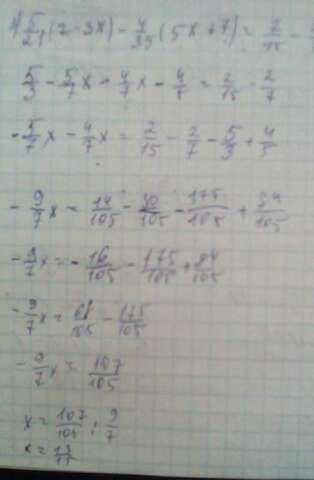 5/21 (7-3x) - 4/35 (5x+7) = 2/15 -
5/3 - 5/7 x - 4/7 x - 4/5 = 2/15 - 2/7
- 5/7 x - 4/7 x = 2/15 - 2/7 - 5/3 + 4/5
- 9/7 x = 14/105 - 30/105 - 175/105 + 84/105
- 9/7 x = - 16/105 - 175/105 + 84/105
- 9/7 x = 68/105 - 175/105
- 9/7 x = 107/105
x = 107/105 : 9/7
x =